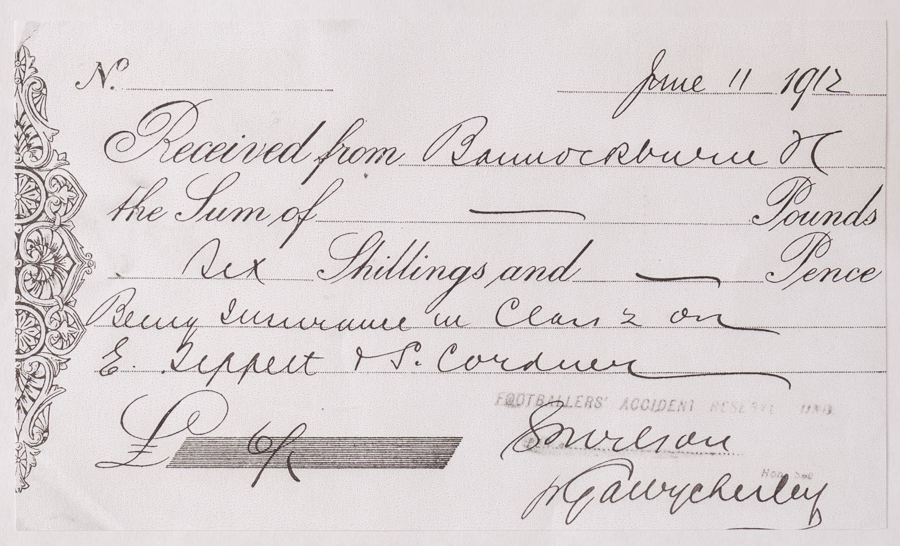 No. June 11 1912
Received from Bannockburn
the Sum of — Pounds
Six Shillings and — Pence
Being Insurance in Class 2 on
E. Tippett & S. Cordner
FOOTBALLERS' ACCIDENT RESERVE FUND
£ 6/-
Wilson
Wycherley